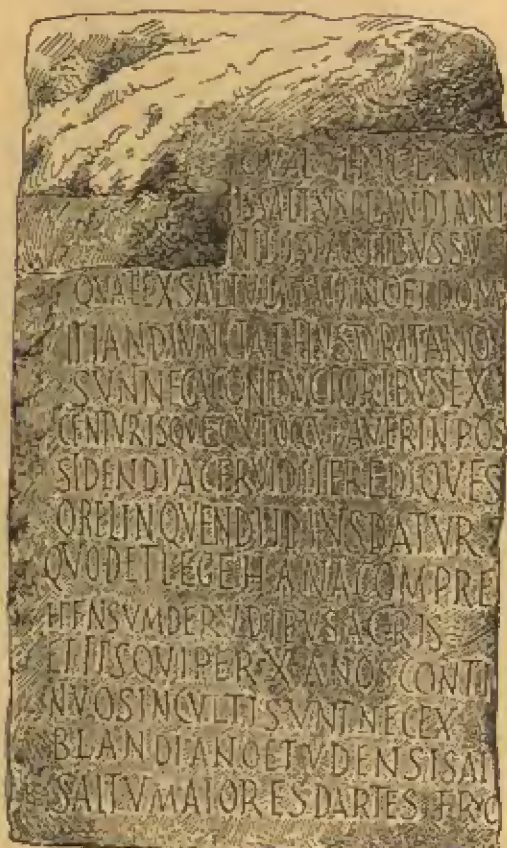 IN CENTV
SALTVS BLANDIANI
PARTIBVS SV
QVAE EX SALTV ET DOM
ITIANO IVNCTAE
SVNT NEC A CONDVCTORIBVS EX
CENTVR ISQVE QVI OCCVPAVERIN POS
SIDENDI AC FRVIDI HEREDIQVE S
O RELINQVENDI ID IVS DATVR
QVOD ET LEGE HANA COMPRE
HENSVM DE RVDIBVS AGRIS
ET IIS QVI PER X ANOS CONTI
NVOS INCVLTI SVNT NEC EX
BLANDIANO ET VDENSI SAL
SALTV MAIORES PARTES FRVC